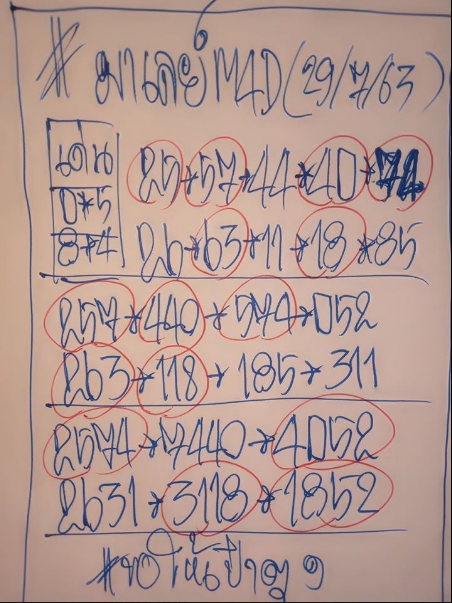 # มาเลย์ M4D (29/7/63)
เด่น 25*57*44*40*74
0*5
8*4 26*63*11*18*85
257*440*574*052
263*118*185*311
2574*7440*4052
2631*3118*1852
#ขอให้เป๋าตุง ๆ